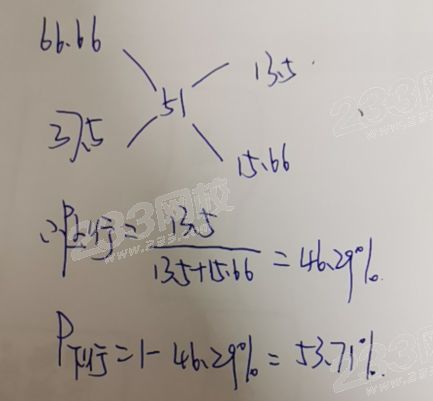 66.66
13.5
51
37.5
15.66
∴P上行=13.5/13.5+15.66=46.29%
P下行=1-46.29%=53.71%.
233网校
www.233.com
233网校
233网校